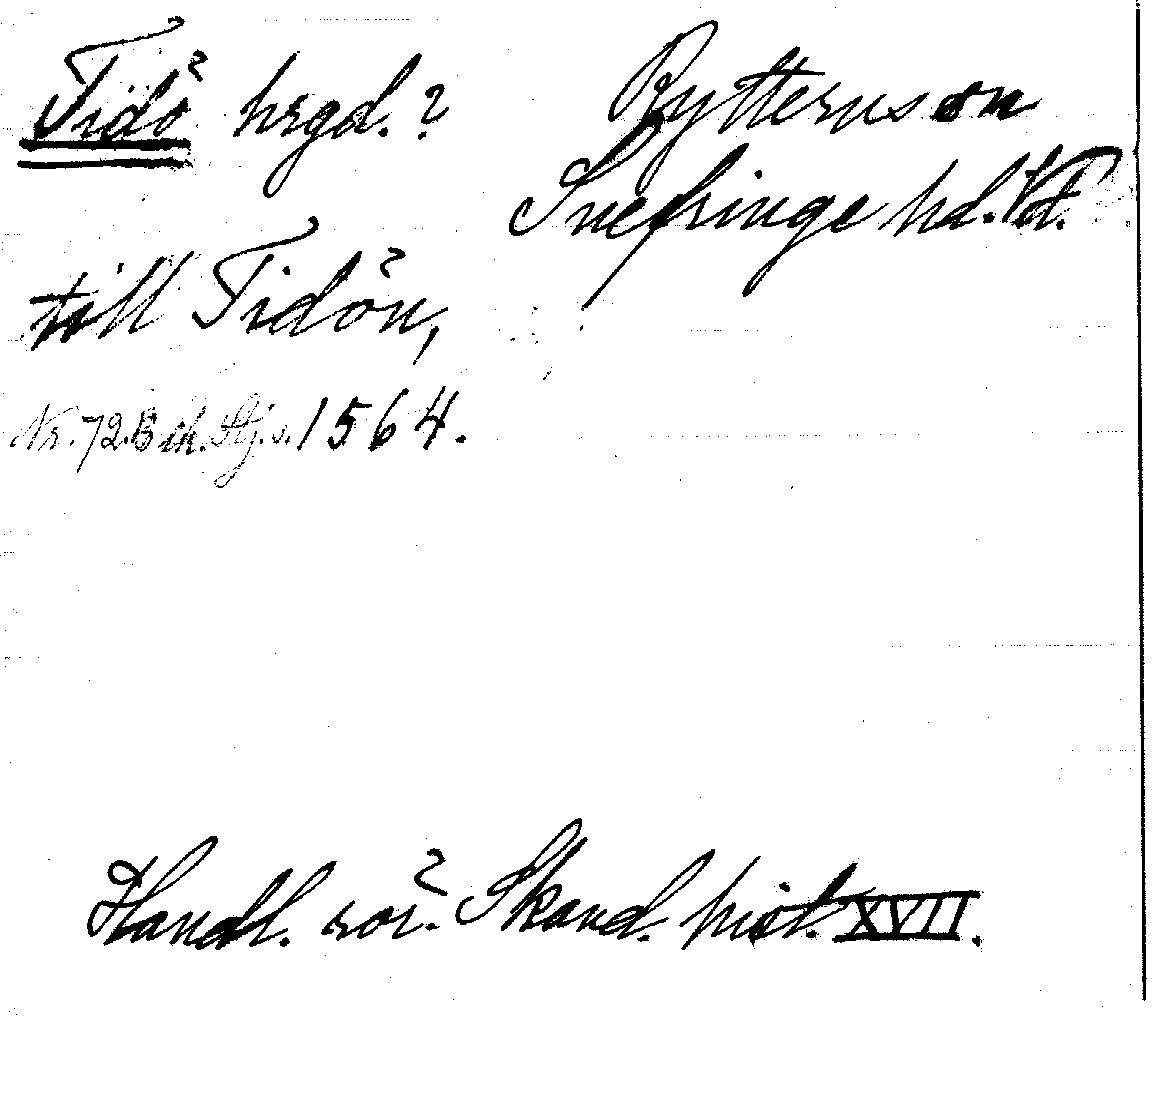 Tidö hrgd.? Rytterns sn
Snefringe hd.
till Tidön,
Nr. 72. Erik Stj.s. 1564.
Handl. rör. Skand. hist. XVII.